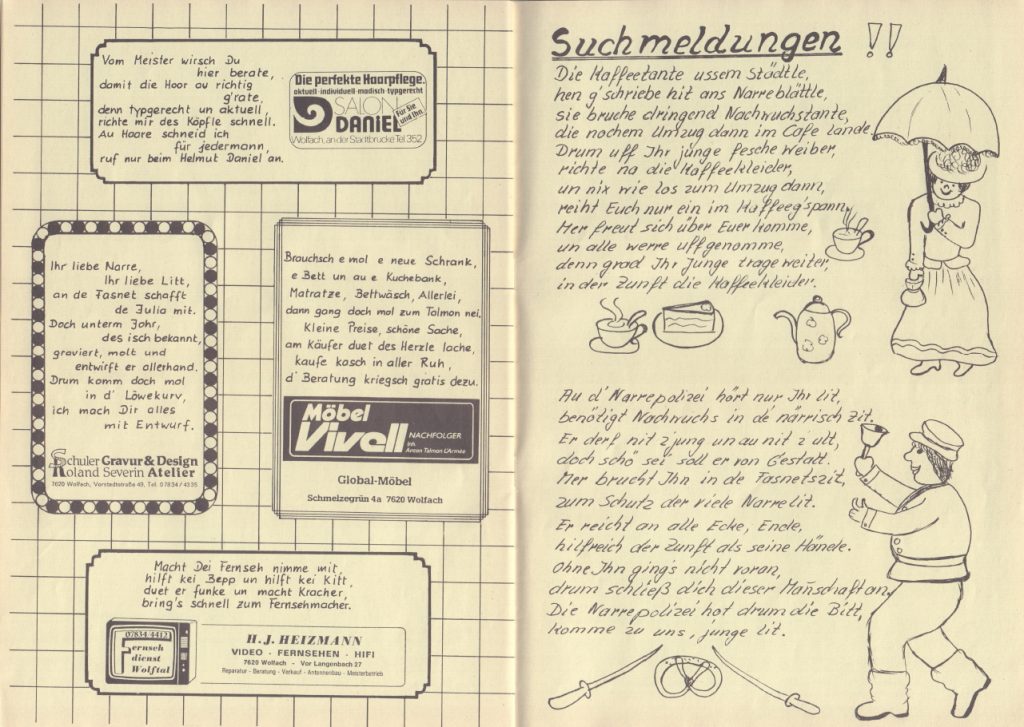 Vom Meister wirsch Du
hier berate,
damit die Hoor au richtig
g'rate,
denn typgerecht un aktuell,
richte mir des Köpfle schnell.
Au Haare schneid ich
für jedermann,
ruf nur beim Helmut Daniel an.
Die perfekte Haarpflege.
aktuell-individuell-modisch-typgerecht
SALON
DANIEL
für Sie
und Ihn
Wolfach, an der Stadtbrücke Tel. 352
Ihr liebe Narre,
Ihr liebe Litt,
an de Fasnet schafft
de Julia mit.
Doch unterm Johr,
des isch bekannt,
graviert, molt und
entwirft er allerhand.
Drum komm doch mol
in d' Löwekurv,
ich mach Dir alles
mit Entwurf.
Schuler Gravur & Design
Roland Severin Atelier
7620 Wolfach, Vorstadtstraße 49, Tel. 07834/4335
Brauchsch e mol e neue Schrank,
e Bett un au e Kuchebank,
Matratze, Bettwäsch, Allerlei,
dann gang doch mol zum Talmon nei.
Kleine Preise, schöne Sache,
am Käufer duet des Herzle lache,
kaufe kasch in aller Ruh,
d' Beratung kriegsch gratis dezu.
Möbel
Vivell NACHFOLGER
Inh.
Anton Talmon L'Armée
Global-Möbel
Schmelzegrün 4a 7620 Wolfach
Macht Dei Fernseh nimme mit,
hilft kei Bepp un hilft kei Kitt,
duet er funke un macht Kracher,
bring's schnell zum Fernsehmacher.
07834/4412
Fernseh
dienst
Wolftal
H. J. HEIZMANN
VIDEO - FERNSEHEN - HIFI
7620 Wolfach - Vor Langenbach 27
Reparatur - Beratung - Verkauf - Antennenbau - Meisterbetrieb
Suchmeldungen !!
Die Kaffeetante ussem Städtle,
hen g'schriebe hit ans Narreblättle,
sie bruche dringend Nachwuchstante,
die nochem Umzug dann im Cafe lande.
Drum uff Ihr junge fesche Weiber,
richte na die Kaffeekleider,
un nix wie los zum Umzug dann,
reiht Euch nur ein im Kaffeeg'spann.
Mer freut sich über Euer komme,
un alle werre uffgenomme,
denn grad Ihr Junge trage weiter,
in der Zunft die Kaffeekleider.
Au d' Narrepolizei hört nur Ihr lit,
benötigt Nachwuchs in de' närrisch Zit.
Er derf nit z jung un au nit z ult,
doch schö sei soll er von Gestalt.
Mer brucht Ihn in de Fasnetszit,
zum Schutz der viele Narrelit.
Er reicht an alle Ecke, Ende,
hilfreich der Zunft als seine Hände.
Ohne Ihn ging's nicht voran,
drum schließ dich dieser Mañschaft an.
Die Narrepolizei hot drum die Bitt,
komme zu uns, junge lit.